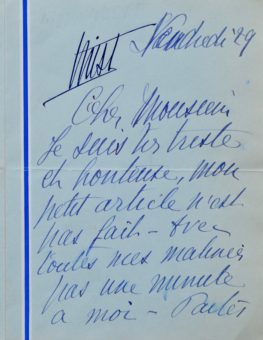 Miss
Vendredi 29
Cher Monsieur
Je suis très triste
et honteuse, mon
petit article n'est
pas fait - Avec
toutes mes matinées
pas une minute
à moi -